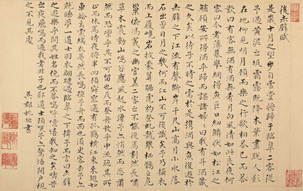 後赤壁賦
是歲十月之望步自雪堂將歸于臨皋二客從
予過黃泥之坂霜露既降木葉盡脫人影
在地仰見明月顧而樂之行歌相答已而
歎曰有客無酒有酒無肴月白風清如此良夜何
客曰今者薄暮舉網得魚巨口細鱗狀如松江之
鱸顧安所得酒乎歸而謀諸婦婦曰我有斗酒藏
之久矣以待子不時之需於是攜酒與魚復遊於
赤壁之下江流有聲斷岸千尺山高月小水落
石出曾日月之幾何而江山不可復識矣予乃攝衣
而上履巉巖披蒙茸踞虎豹登虬龍攀栖鶻之危
巢俯馮夷之幽宮蓋二客不能從焉劃然長嘯
草木震動山鳴谷應風起水涌予亦悄然而悲肅
然而恐凜乎其不可留也反而登舟放乎中流聽其所
止而休焉時夜將半四顧寂寥適有孤鶴橫江
東來翅如車輪玄裳縞衣戛然長鳴掠予舟而西也須臾
客去予亦就睡夢一道士羽衣翩躚過臨皋之下揖予而言曰
赤壁之遊樂乎問其姓名俛而不答嗚呼噫嘻我知之矣疇昔
之夜飛鳴而過我者非子也耶道士顧笑予亦驚寤開戶
視之不見其處